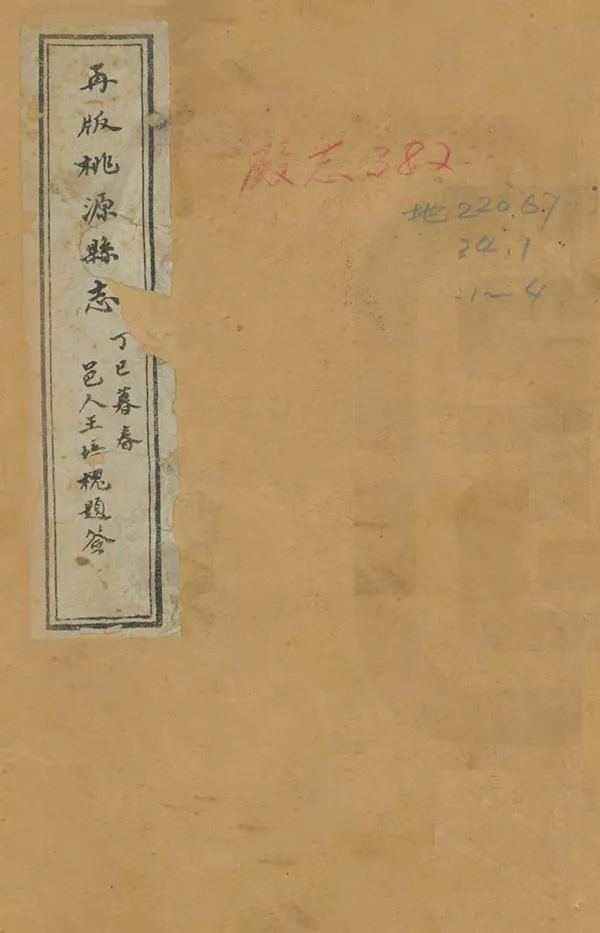 再版桃源縣志
丁巳暮春
邑人王垣槐題簽
志382
地220.87
34.1
1~4